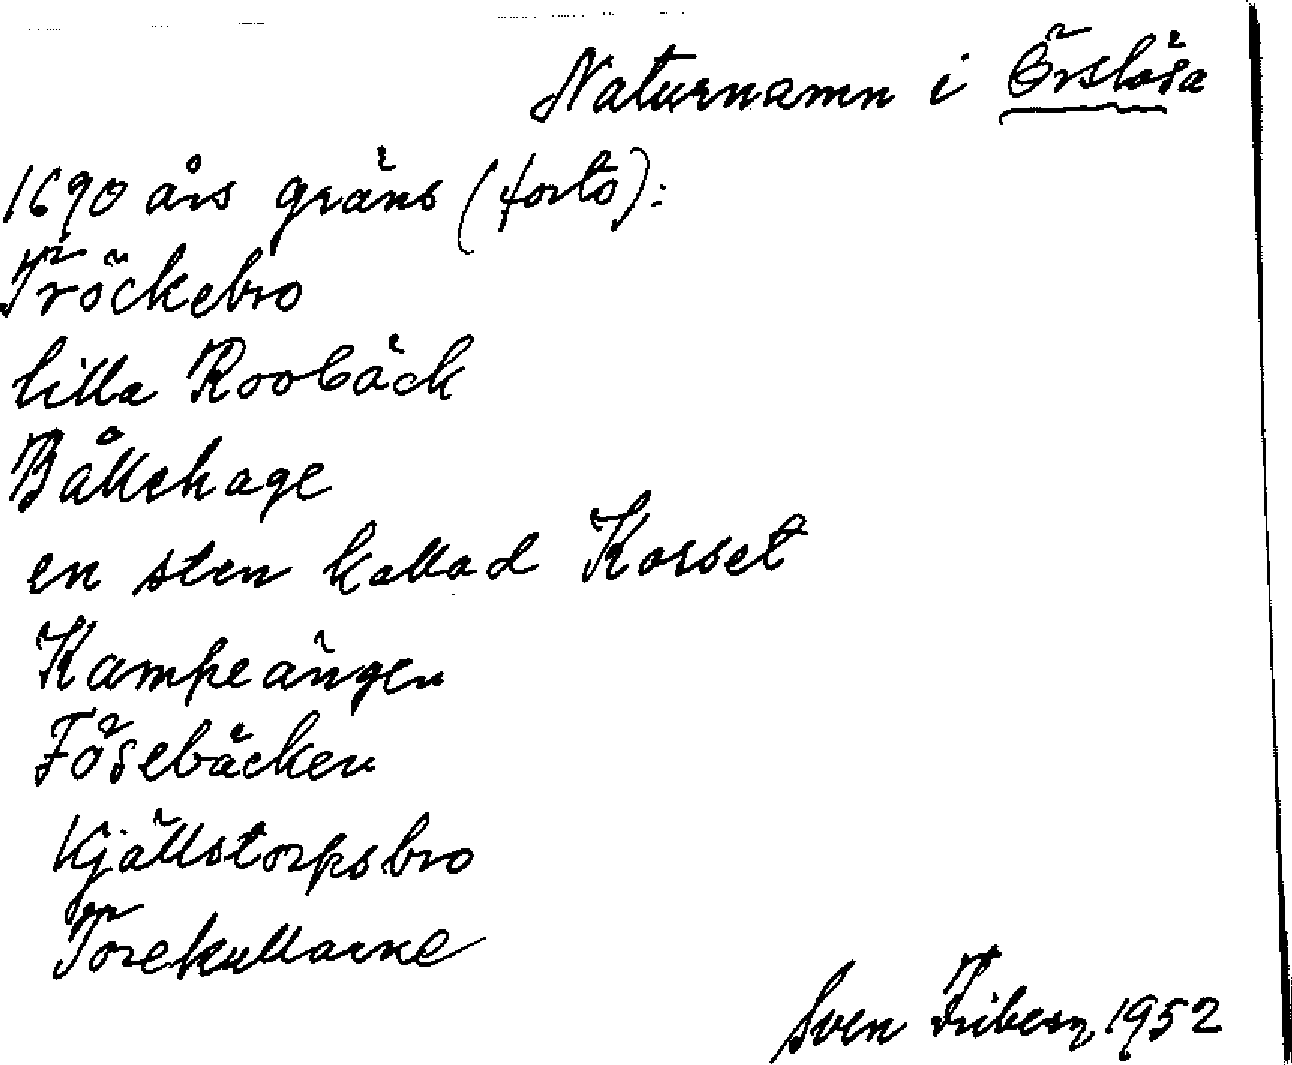 Naturnamn i Örslösa
1690 års gräns (forts):
Tröckebro
lilla Roobäck
Bållehage
en sten kallad Korset
Kampeängen
Fösebäcken
Kjällstorpsbro
Torekullarne
Sven Friberg 1952